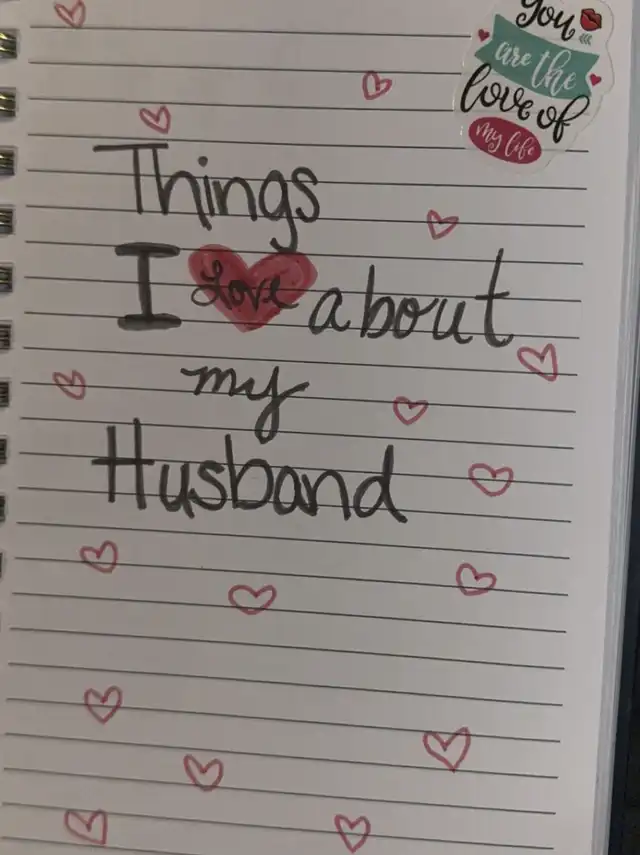 You
are the
love of
my life
Things
I Love about
my
Husband